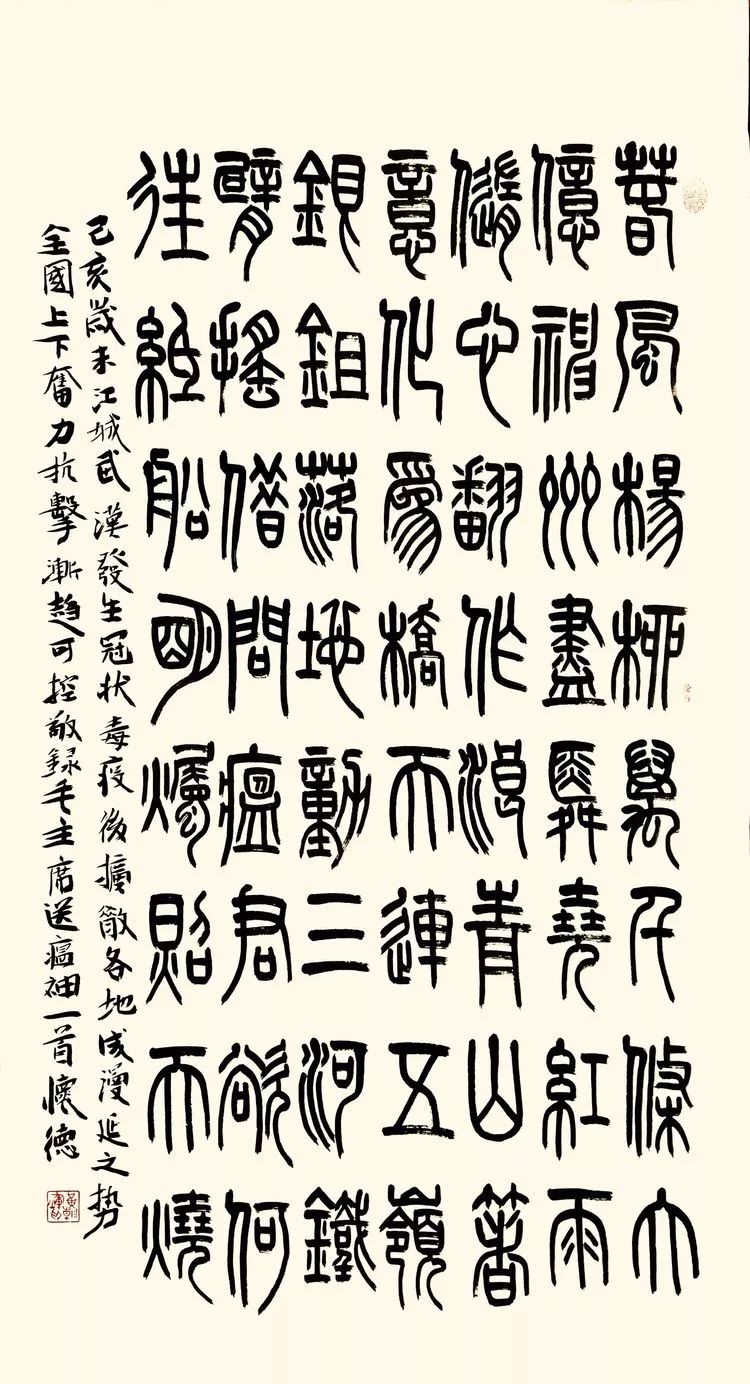 春風楊柳萬千條六
億神州盡舜堯紅雨
隨心翻作浪青山著
意化為橋天連五嶺
銀鉏落地動三河鐵
臂搖借問瘟君欲何
往紙船明燭照天燒
己亥歲末江城武漢發生冠狀毒疫後擴散各地成漫延之勢
全國上下奮力抗擊漸趨可控敬録毛主席送瘟神一首懷德